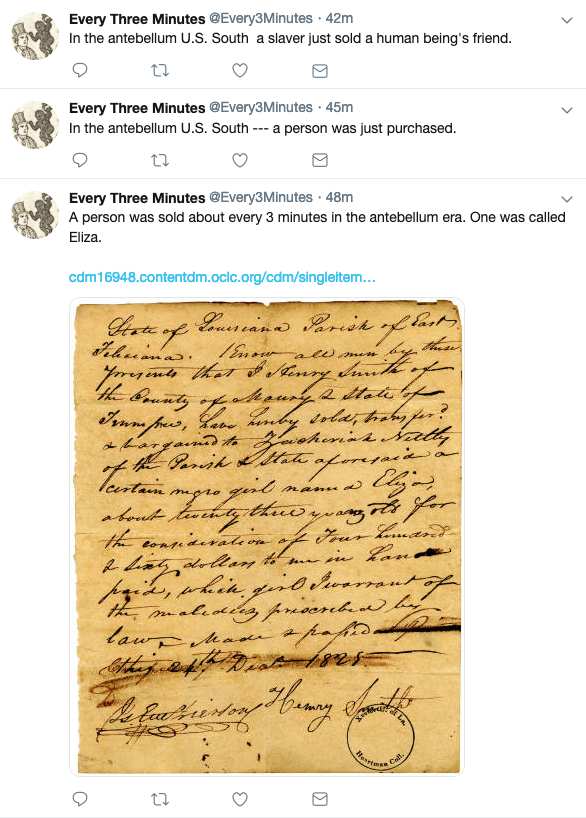 Every Three Minutes @Every3Minutes · 42m
In the antebellum U.S. South  a slaver just sold a human being's friend.
Every Three Minutes @Every3Minutes · 45m
In the antebellum U.S. South --- a person was just purchased.
Every Three Minutes @Every3Minutes · 48m
A person was sold about every 3 minutes in the antebellum era. One was called
Eliza.
cdm16948.contentdm.oclc.org/cdm/singleitem…
State of Louisiana Parish of East
Feliciana. Know all men by these
presents that I Henry Smith of
the County of Maury & State of
have hereby sold, transfer.d
& bargained to Zacheriah
of the Parish & State aforesaid a
certain negro girl named Eliza,
about twenty three years old for
the consideration of Four hundred
& sixty dollars to me in hand
paid, which girl I warrant of
the maladies prescribed by
law. Made & passed
this 24th Decr 1825
Henry Smith
of La.
Heartman Coll.